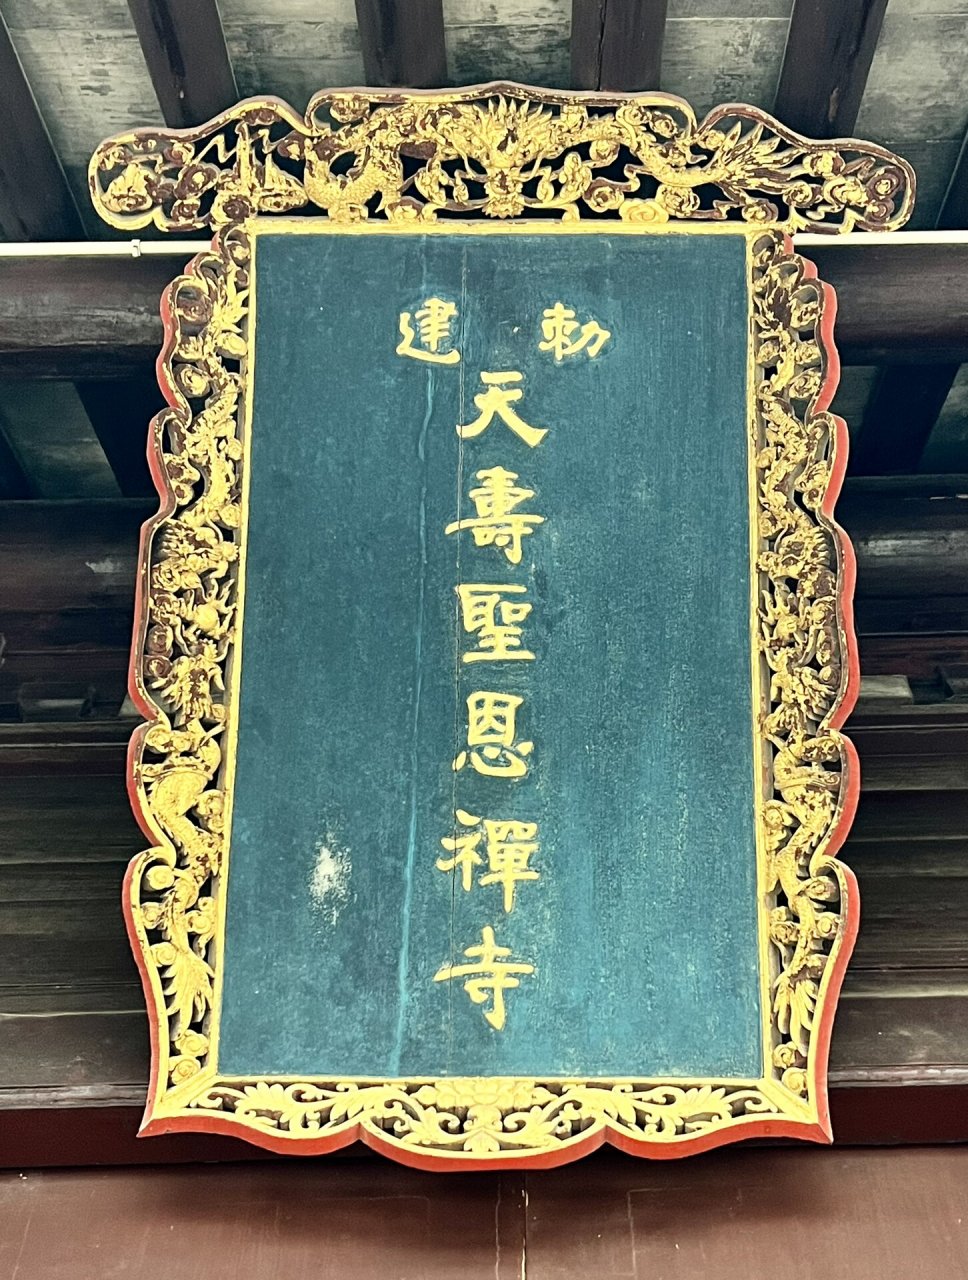 勅建
天壽聖恩禪寺